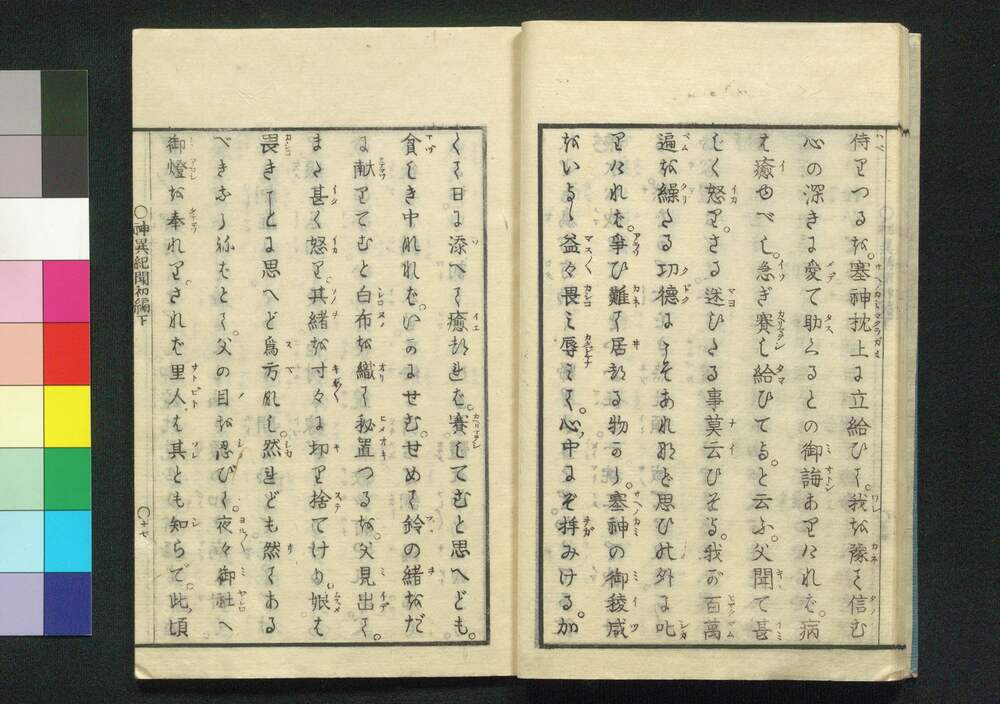 侍りつるを。塞神枕上に立給ひて。我を豫て信む
心の深きに愛て助くるとの御誨ありければ。病
は癒ゆべし。急ぎ賽し給ひてよ。と云ふ。父聞て甚
じく怒りて。さる迷ひたる事莫云ひそよ。我が百萬
遍を繰たる功徳にこそあれ。那ど思ひの外に叱
りければ。爭ひ難くて居たる物から。塞神の御稜威
をいよゝ益々畏み辱みて。心中にぞ拝みける。加
くて日に添へて癒たれば。賽してむと思へども。
貧しき中なれば。いかにせむ。せめて鈴の緒をだ
に献りてむと白布を織て秘置つるを。父見出て。
また甚く怒り。其緒を寸々に切り捨てけり。娘は
畏きことに思へど爲方なし。然れども然てある
べきならねばとて。父の目を忍びて。夜々御社へ
御燈を奉れり。されば里人は其とも知らで。此頃
○神異紀聞初編下
○十七